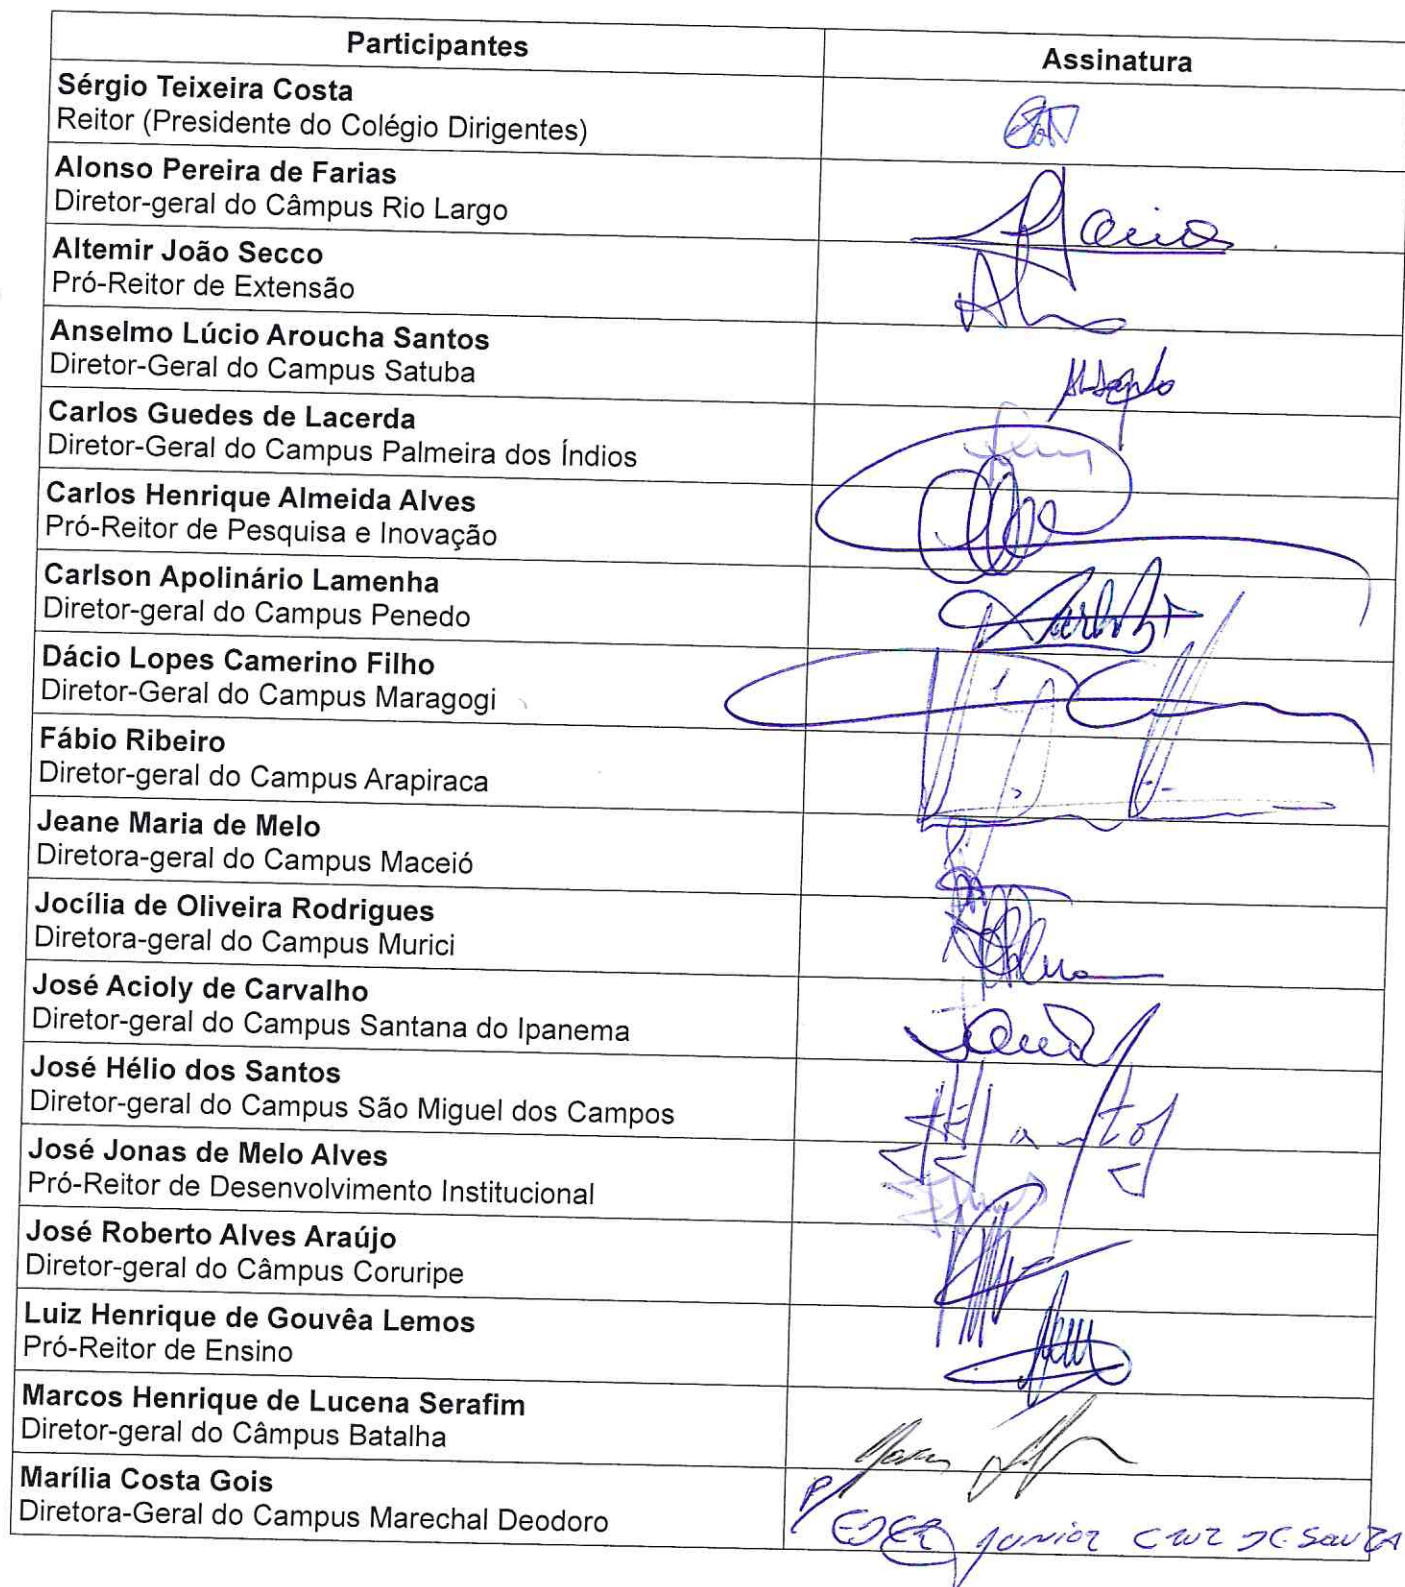 Participantes
Assinatura
Sérgio Teixeira Costa
Reitor (Presidente do Colégio Dirigentes)
Alonso Pereira de Farias
Diretor-geral do Câmpus Rio Largo
Altemir João Secco
Pró-Reitor de Extensão
Anselmo Lúcio Aroucha Santos
Diretor-Geral do Campus Satuba
Carlos Guedes de Lacerda
Diretor-Geral do Campus Palmeira dos Índios
Carlos Henrique Almeida Alves
Pró-Reitor de Pesquisa e Inovação
Carlson Apolinário Lamenha
Diretor-geral do Campus Penedo
Dácio Lopes Camerino Filho
Diretor-Geral do Campus Maragogi
Fábio Ribeiro
Diretor-geral do Campus Arapiraca
Jeane Maria de Melo
Diretora-geral do Campus Maceió
Jocília de Oliveira Rodrigues
Diretora-geral do Campus Murici
José Acioly de Carvalho
Diretor-geral do Campus Santana do Ipanema
José Hélio dos Santos
Diretor-geral do Campus São Miguel dos Campos
José Jonas de Melo Alves
Pró-Reitor de Desenvolvimento Institucional
José Roberto Alves Araújo
Diretor-geral do Câmpus Coruripe
Luiz Henrique de Gouvêa Lemos
Pró-Reitor de Ensino
Marcos Henrique de Lucena Serafim
Diretor-geral do Câmpus Batalha
Marília Costa Gois
Diretora-Geral do Campus Marechal Deodoro
P/ EDER JUNIOR CRUZ DE SOUZA